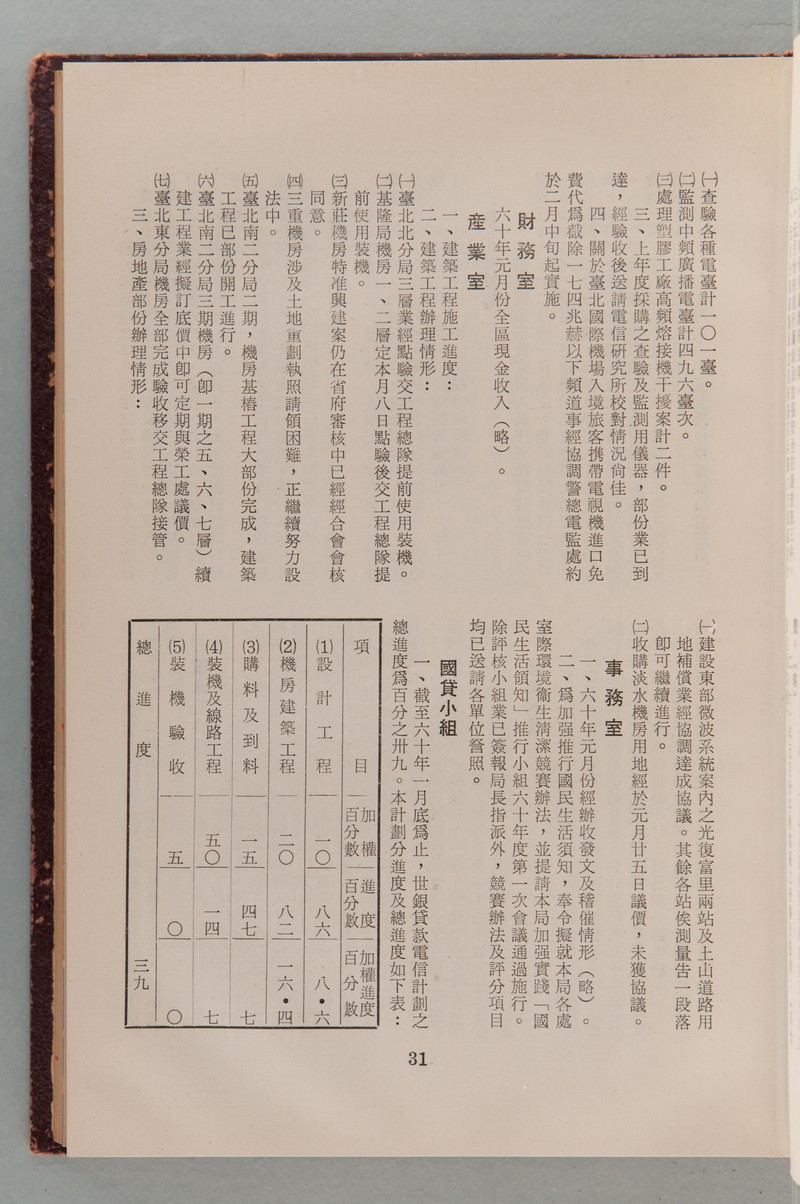 ㈠查驗各種電臺計一〇一臺。
㈡監測中頻廣播電臺計四九六臺次。
㈢處理塑膠工廠高頻熔接機干擾案計二件。
三、上年度採購之查驗及監測用儀器，部份業已到
達，經驗收後送請電信研究所校對情況尚佳。
四、關於臺北國際機場入境旅客携帶電視機進口免
費代爲截除一七四兆赫以下頻道事經協調警總電監處約
於二月中旬起實施。
財務室
六十年元月份全區現金收入（略）。
產業室
一、建築工程施工進度：
二、建築工程辦理情形：
㈠臺北北分局三層業經點驗交工程總隊提前使用裝機。
㈡基隆局機房一、二層定本月八日點驗後交工程總隊提
前使用裝機。
㈢新莊機房特准興建案仍在省府審核中已經經合會會核
同意。
㈣三重機房涉及土地重劃執照請領困難，正繼續努力設
法中。
㈤臺北南二分局二期，機房基樁工程大部份完成，建築
工程已部份開工進行。
㈥臺北南二分局三期機房（卽一期之五、六、七層）續
建工程業經擬訂底價中卽可定期與榮工處議價。
㈦臺北東分局機房全部完成驗收移交工程總隊接管。
三、房地產部份辦理情形：
㈠建設東部微波系統案內之光復富里兩站及土山道路用
地補償業經協調達成協議。其餘各站俟測量告一段落
卽可繼續進行。
㈡收購淡水機房用地經於元月廿五日議價，未獲協議。
事務室
一、六十年元月份經辦收發文及稽催情形（略）。
二、爲加强推行國民生活須知，奉令擬就本局各處
室際環境衞生清潔競賽辦法，並提請本局加强實踐「國
民生活須知」推行小組六十年度第一次會議通過施行。
除評核小組業已簽報局長指派外，競賽辦法及評分項目
均已送請各單位詧照。
國貸小組
一、截至六十年一月底爲止，世銀貸款電信計劃之
總進度爲百分之卅九。本計劃分進度及總進度如下表：
項目 加權百分數 進度百分數 加權進度百分數
⑴設計工程 一〇 八六 八・六
⑵機房建築工程 二〇 八二 一六・四
⑶購料及到料 一五 四七 七
⑷裝機及線路工程 五〇 一四 七
⑸裝機驗收 五 〇 〇
總進度 三九
31